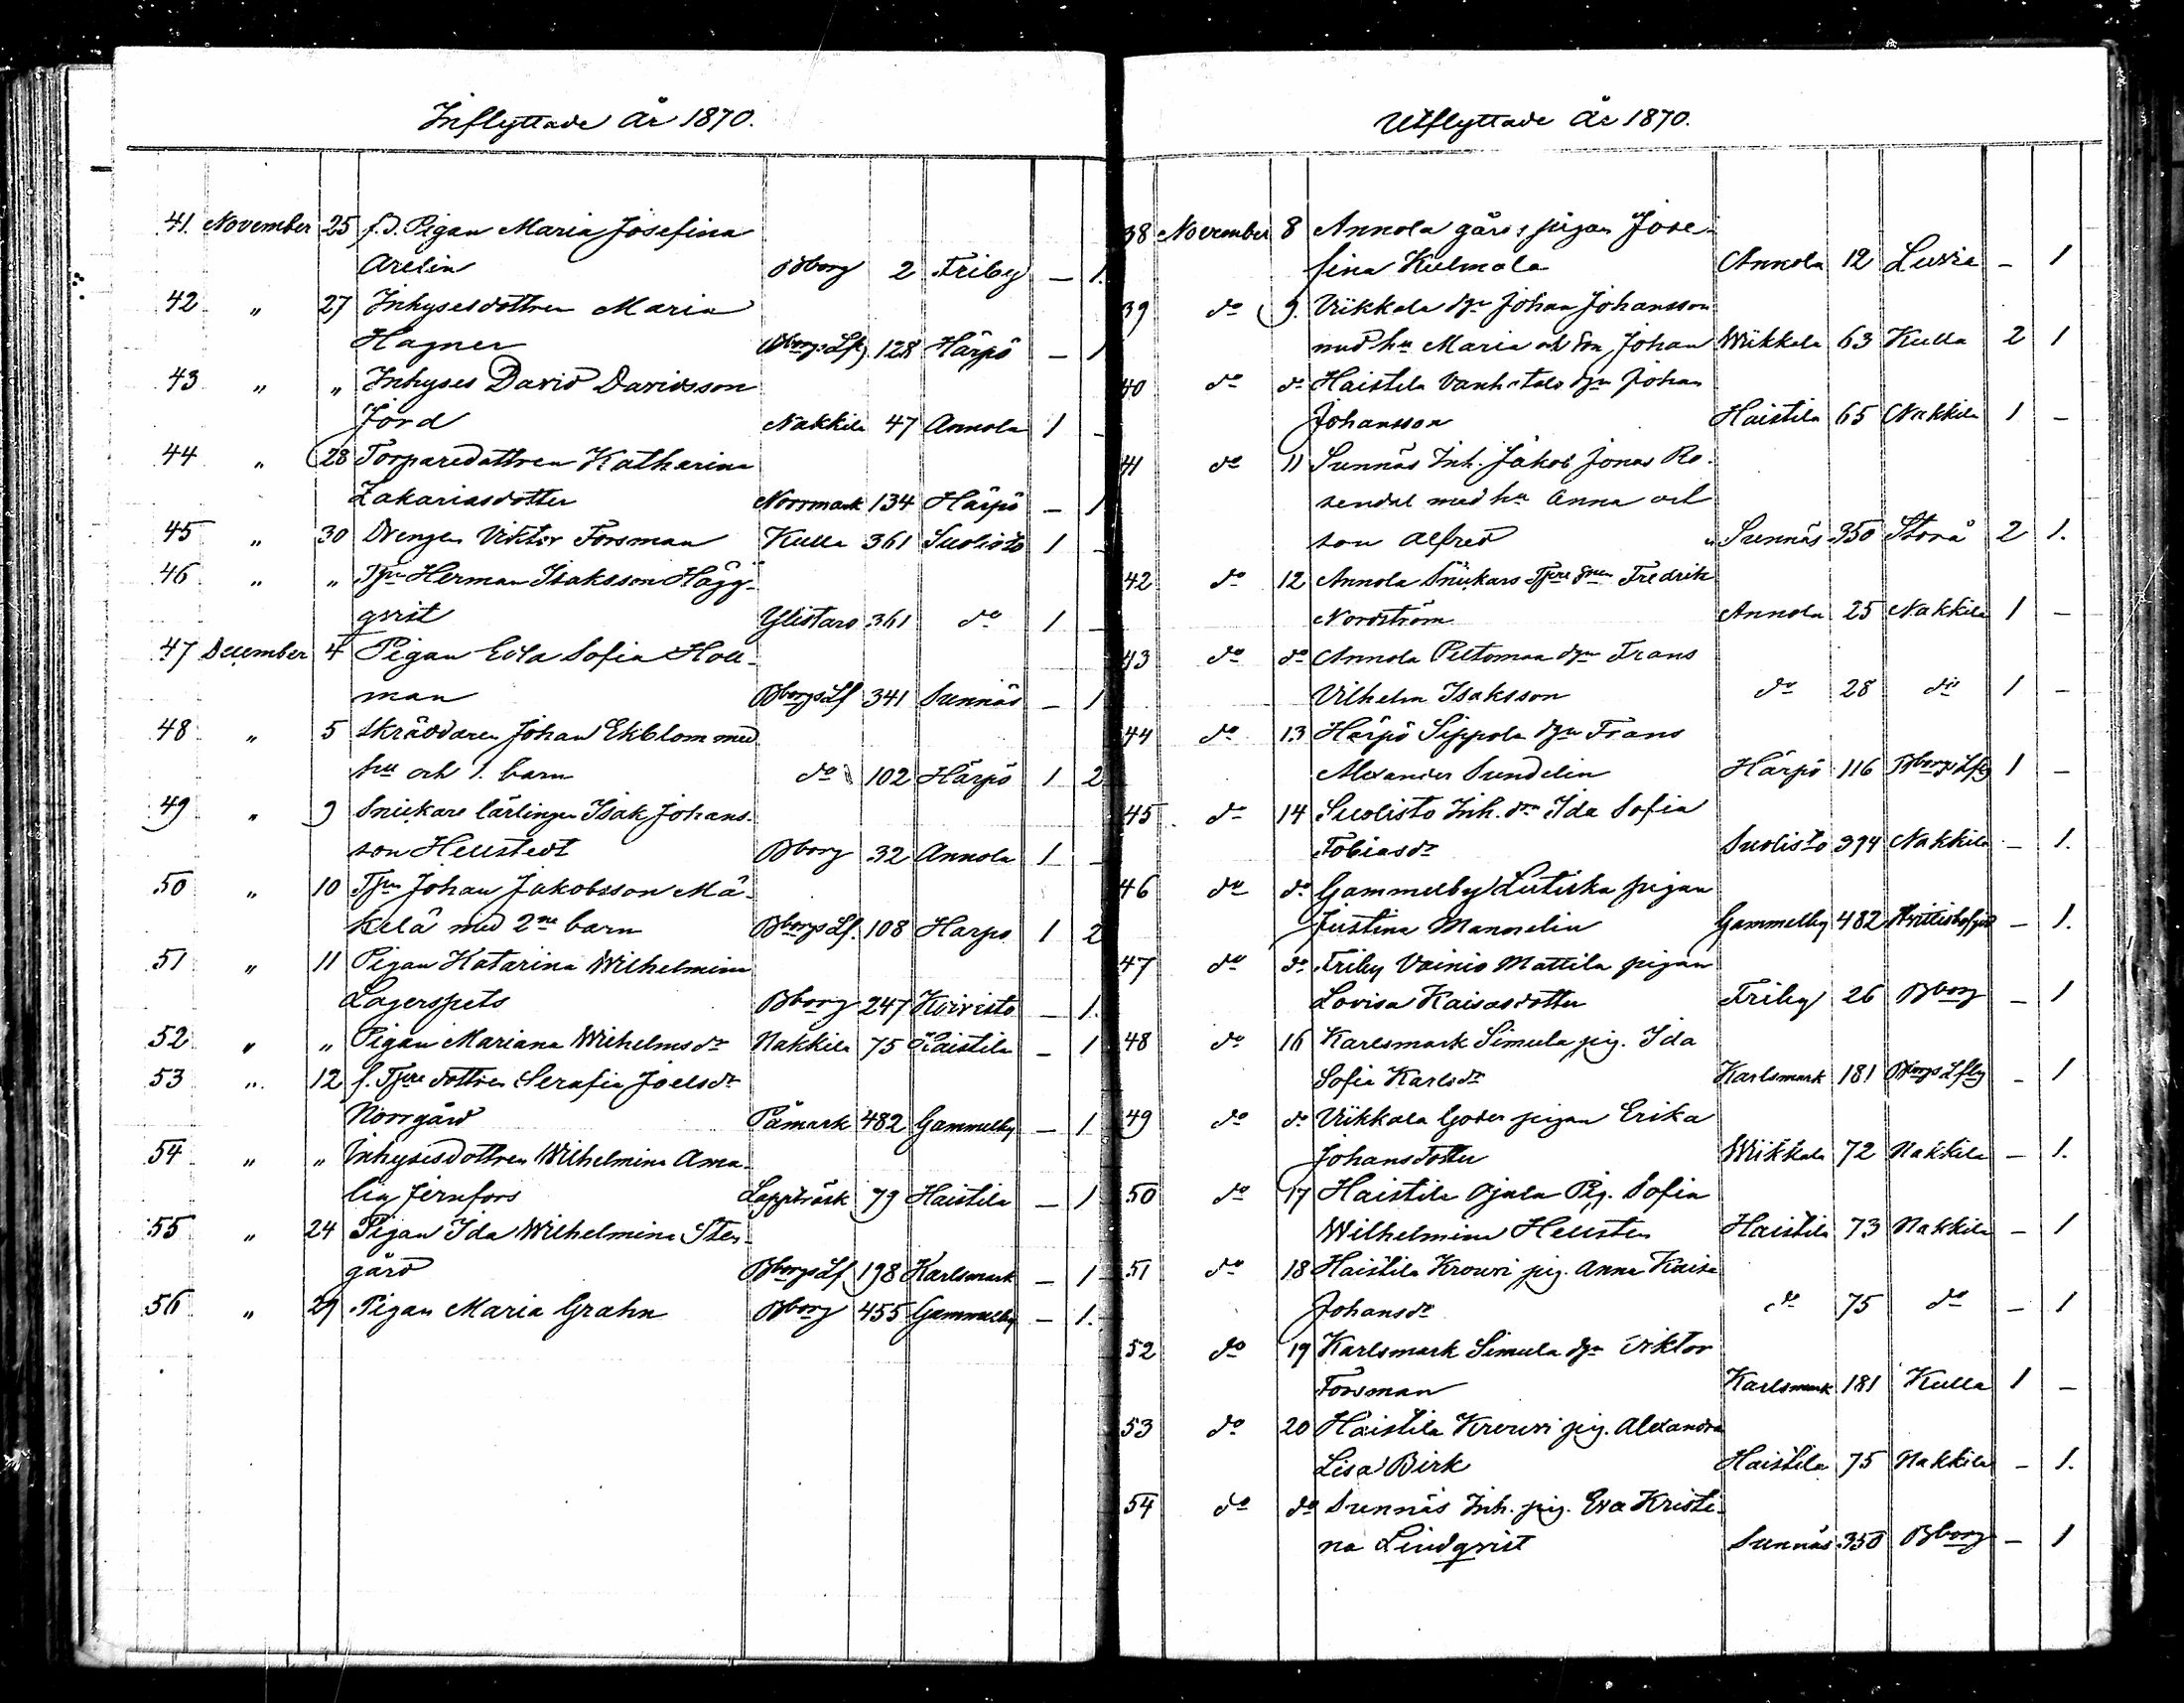 Inflyttade År 1870.
41. November 25 f.d. Pigan Maria Josefina
Arelin Bborg 2 Friby — 1.
42 " 27 Inhysesdottren Maria
Hagner Bborgs Lf 128 Härpö — 1
43 " " Inhyses David Davidsson
Jord Nakkila 47 Annola 1 —
44 " 28 Torparedottren Katharina
Zakariasdotter Norrmark 134 Härpö — 1
45 " 30 Drengen Viktor Forsman Kulla 361 Suolisto 1 —
46 " " Tjrn Herman Isaksson Hägg-
qvist Ylistaro 361 do 1 —
47 December 4 Pigan Edla Sofia Holl-
man Bborgs Lf 341 Sunnäs — 1
48 " 5 Skräddaren Johan Ekblom med
hu och 1. barn do 102 Härpö 1 2
49 " 9 Snickare lärlingen Isak Johans-
son Hellstedt Bborg 32 Annola 1 —
50 " 10 Tjrn Johan Jakobsson Mä-
kelä med 2ne barn Bborgs Lf. 108 Harpo 1 2
51 " 11 Pigan Katarina Wilhelmina
Lagerspets Bborg 247 Koivisto — 1.
52 " " Pigan Mariana Wilhelmsdr Nakkila 75 Haistila — 1
53 " 12 f. Tjre dottren Serafia Joelsdr
Norrgård Påmark 482 Gammelby — 1
54 " " Inhysesdottren Wilhelmina Ama-
lia Jernfors Lappträsk 79 Haistila — 1
55 " 24 Pigan Ida Wilhelmina Sten-
gård Bborgs Lf 198 Karlsmark — 1
56 " 29 Pigan Maria Grahn Bborg 455 Gammelby — 1.
Utflyttade År 1870.
38 November 8 Annola gårds pigan Jose-
fina Kulmala Annola 12 Luvia — 1
39 do 9. Viikkala dgn Johan Johansson
med hu Maria och son Johan Wiikkala 63 Kulla 2 1
40 do do Haistila Vanhatalo dgn Johan
Johansson Haistila 65 Nakkila 1 —
41 do 11 Sunnäs Inh. Jakob Jonas Ro-
sendal med hu Anna och
son Alfred Sunnäs 350 Storå 2 1.
42 do 12 Annola Snickars Tjre Fredrik
Nordström Annola 25 Nakkila 1 —
43 do do Annola Peltomaa dgn Frans
Vilhelm Isaksson do 28 do 1 —
44 do 13 Härpö Sippola dgn Frans
Alexander Sundelin Härpö 116 Bborgs Lfg 1 —
45 do 14 Suolisto Inh. dr Ida Sofia
Tobiasdr Suolisto 394 Nakkila — 1.
46 do do Gammelby Lutiska pigan
Justina Mannelin Gammelby 482 — 1.
47 do do Friby Vainio Mattila pigan
Lovisa Kaisasdotter Friby 26 Bborg — 1
48 do 16 Karlsmark Simula pig. Ida
Sofia Karlsdr Karlsmark 181 Bborgs Lfg — 1
49 do do Viikkala Goder pigan Erika
Johansdotter Wiikkala 72 Nakkila — 1.
50 do 17 Haistila Ojala Pig. Sofia
Wilhelmina Hellsten Haistila 73 Nakkila — 1
51 do 18 Haistila Krouvi pig. Anna Kaisa
Johansdr do 75 do — 1
52 do 19 Karlsmark Simula dgn Viktor
Forsman Karlsmark 181 Kulla 1 —
53 do 20 Haistila Krouvi pig. Alexandra
Lisa Birk Haistila 75 Nakkila — 1.
54 do do Sunnäs Inh. pig. Eva Kristi-
na Lindqvist Sunnäs 350 Bborg — 1